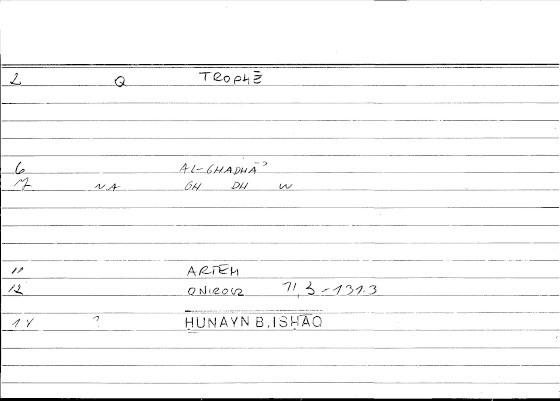 2 Q TROPHĒ
6 AL-GHADHĀʾ
7 NA GH DH W
11 ARTEM
12 ONIROCR 71,3-131.3
14 ? ḤUNAYN B.ISḤĀQ